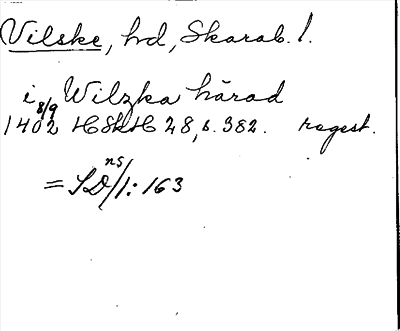 Vilske, hd, Skarab. l.
i Wilzka härad
8/9
1402 HSkH 28, s. 382. regest.
ns
= SD/1: 163